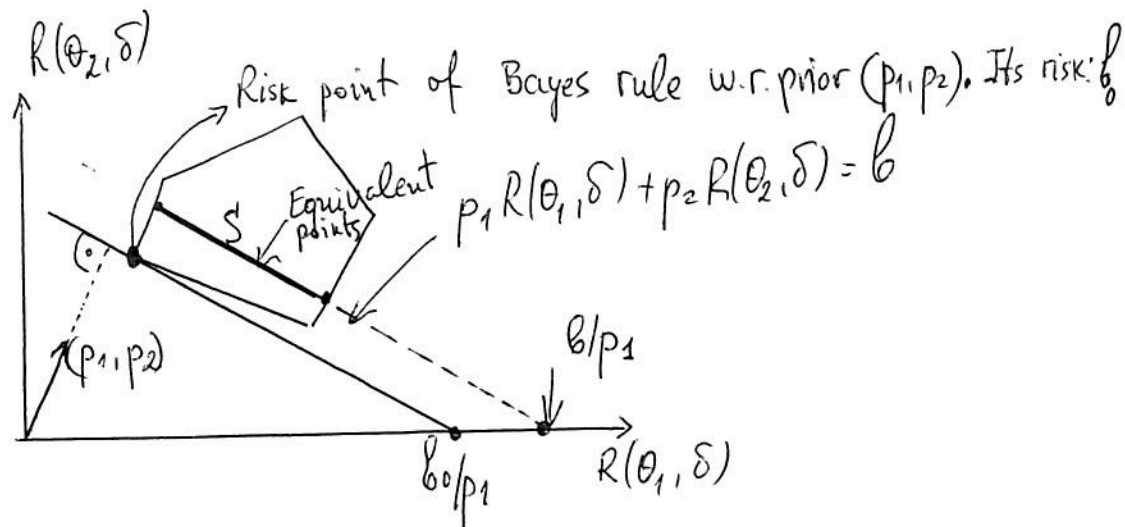 R(θ₂, δ)
Risk point of Bayes rule w.r. prior (p₁, p₂). Its risk: b₀
p₁ R(θ₁, δ) + p₂ R(θ₂, δ) = b
Equivalent
points
S
(p₁, p₂)
b/p₁
b₀/p₁
R(θ₁, δ)